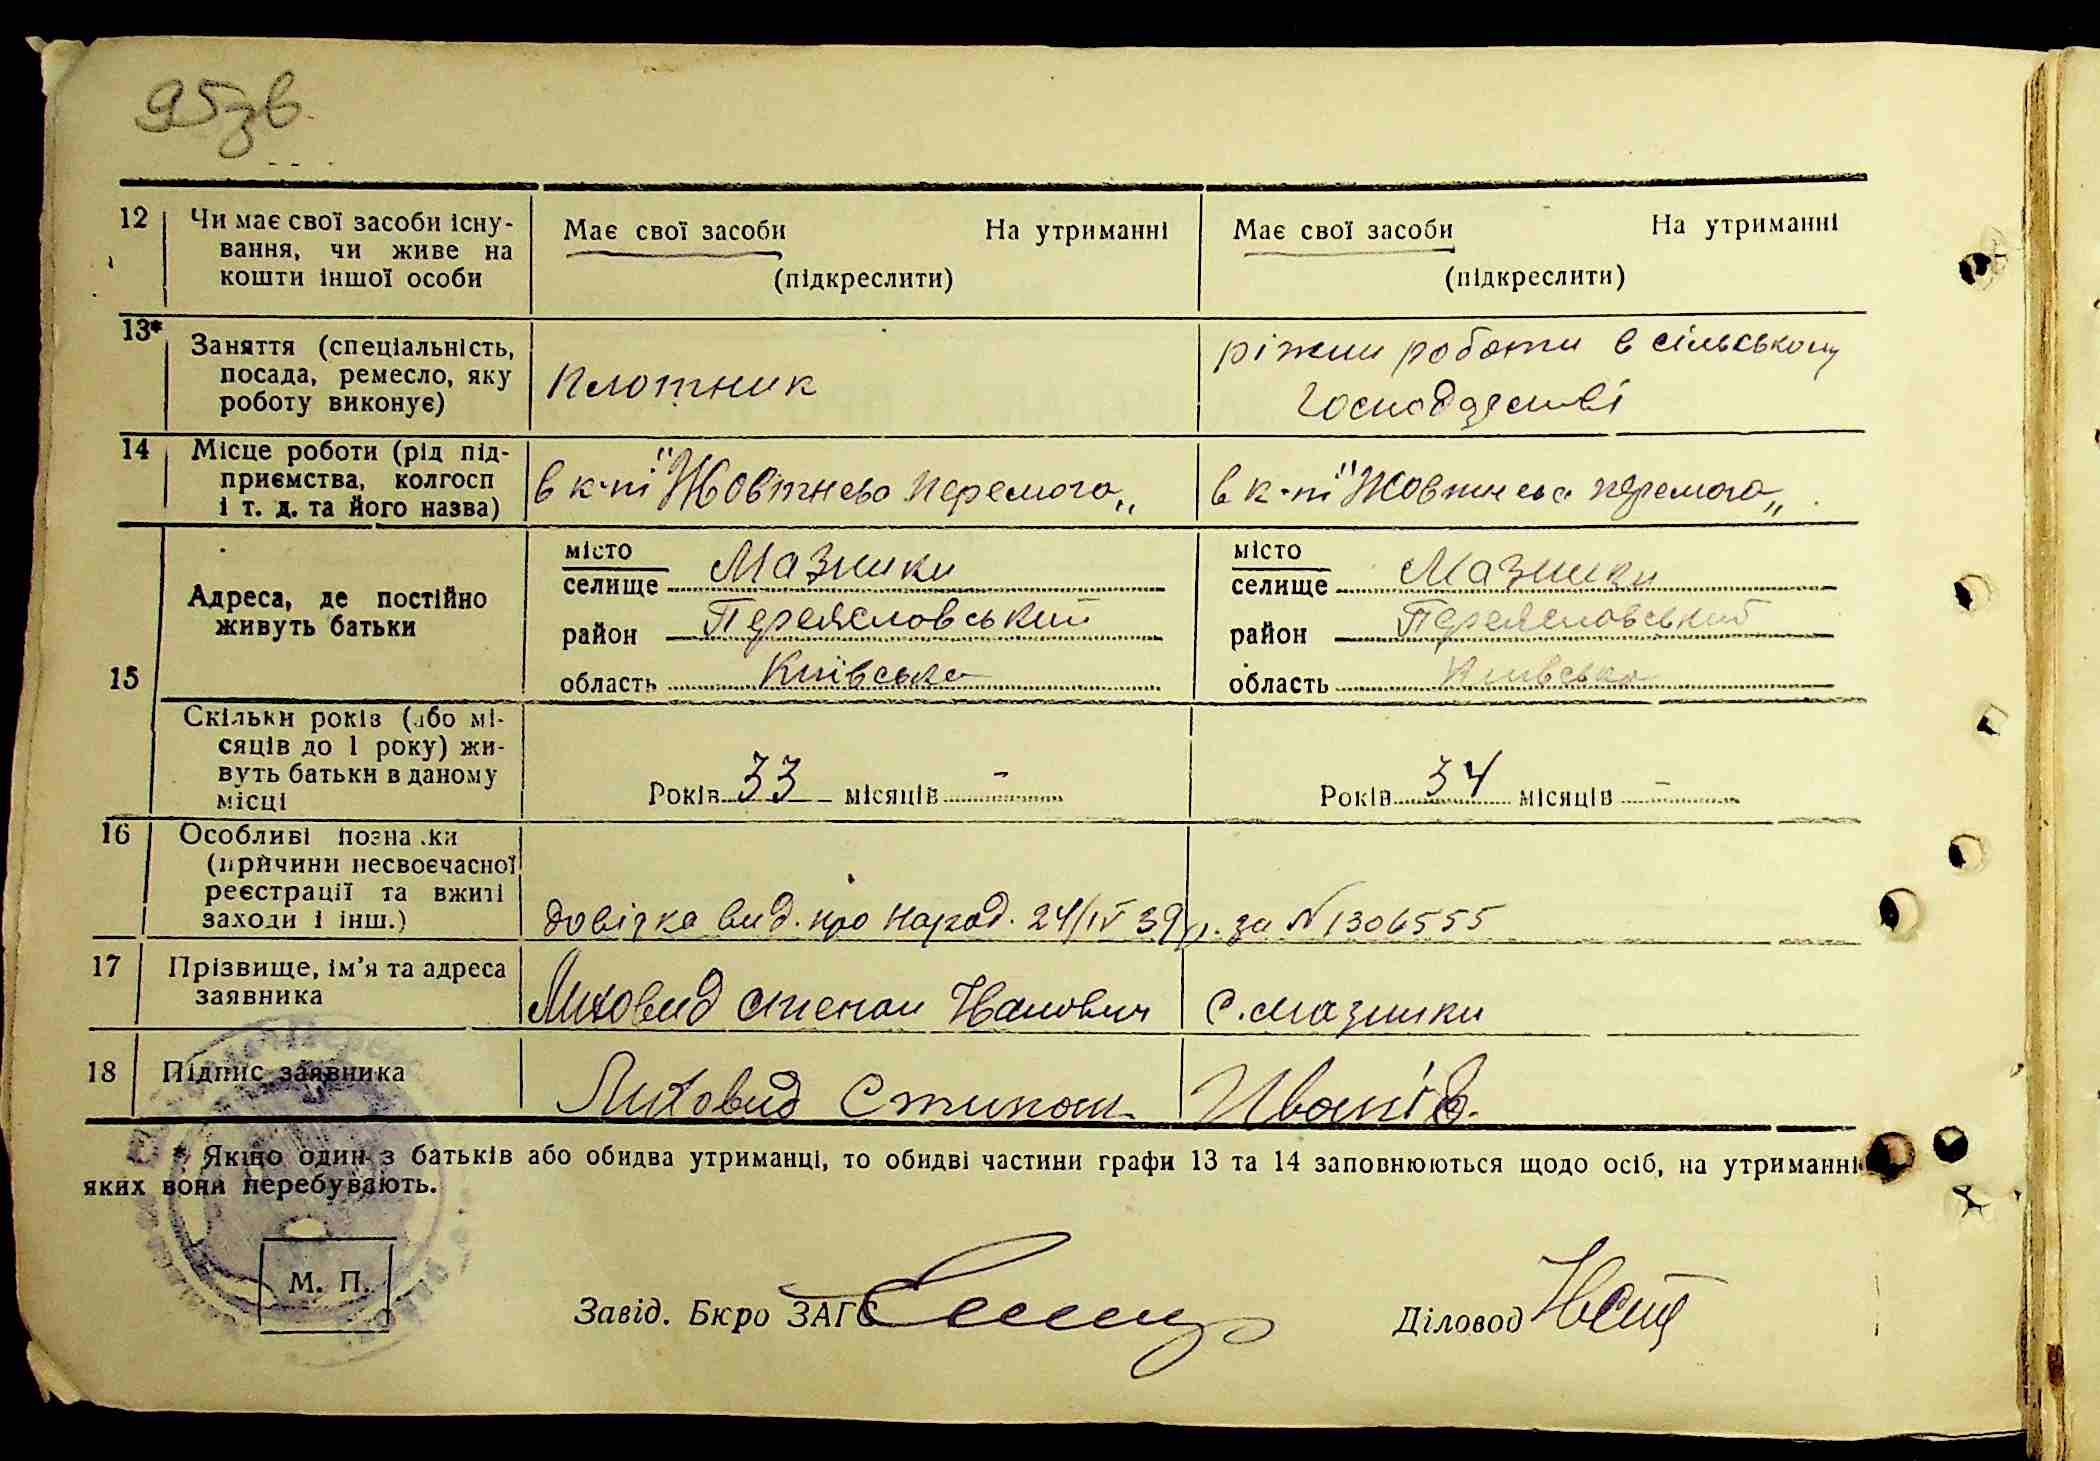 95зв.
12 Чи має свої засоби існу-
вання, чи живе на
кошти іншої особи
Має свої засоби На утриманні
(підкреслити)
Має свої засоби На утриманні
(підкреслити)
13* Заняття (спеціальність,
посада, ремесло, яку
роботу виконує)
плотник
ріжни роботи в сільському
господарстві
14 Місце роботи (рід під-
приємства, колгосп
і т. д. та його назва)
в к-пі "Жовтнева перемога„
в к-пі "Жовтнева перемога„
15 Адреса, де постійно
живуть батьки
місто
селище Мазинки
район Переясловський
область Київська
місто
селище Мазинки
район Переясловський
область Київська
Скільки років (або мі-
сяців до 1 року) жи-
вуть батьки в даному
місці
Років 33 місяців –
Років 34 місяців –
16 Особливі позна.ки
(причини несвоєчасної
реєстрації та вжиті
заходи і інш.)
довідка вид. про народ. 24/IV 39 р. за N 1306555
17 Прізвище, ім'я та адреса
заявника
Лиховид Степан Іванович с. Мазинки
18 Підпис заявника
Лиховид Стипан Иванів.
* Якщо один з батьків або обидва утриманці, то обидві частини графи 13 та 14 заповнюються щодо осіб, на утриманні
яких вони перебувають.
М. П.
Завід. Бюро ЗАГС
Діловод